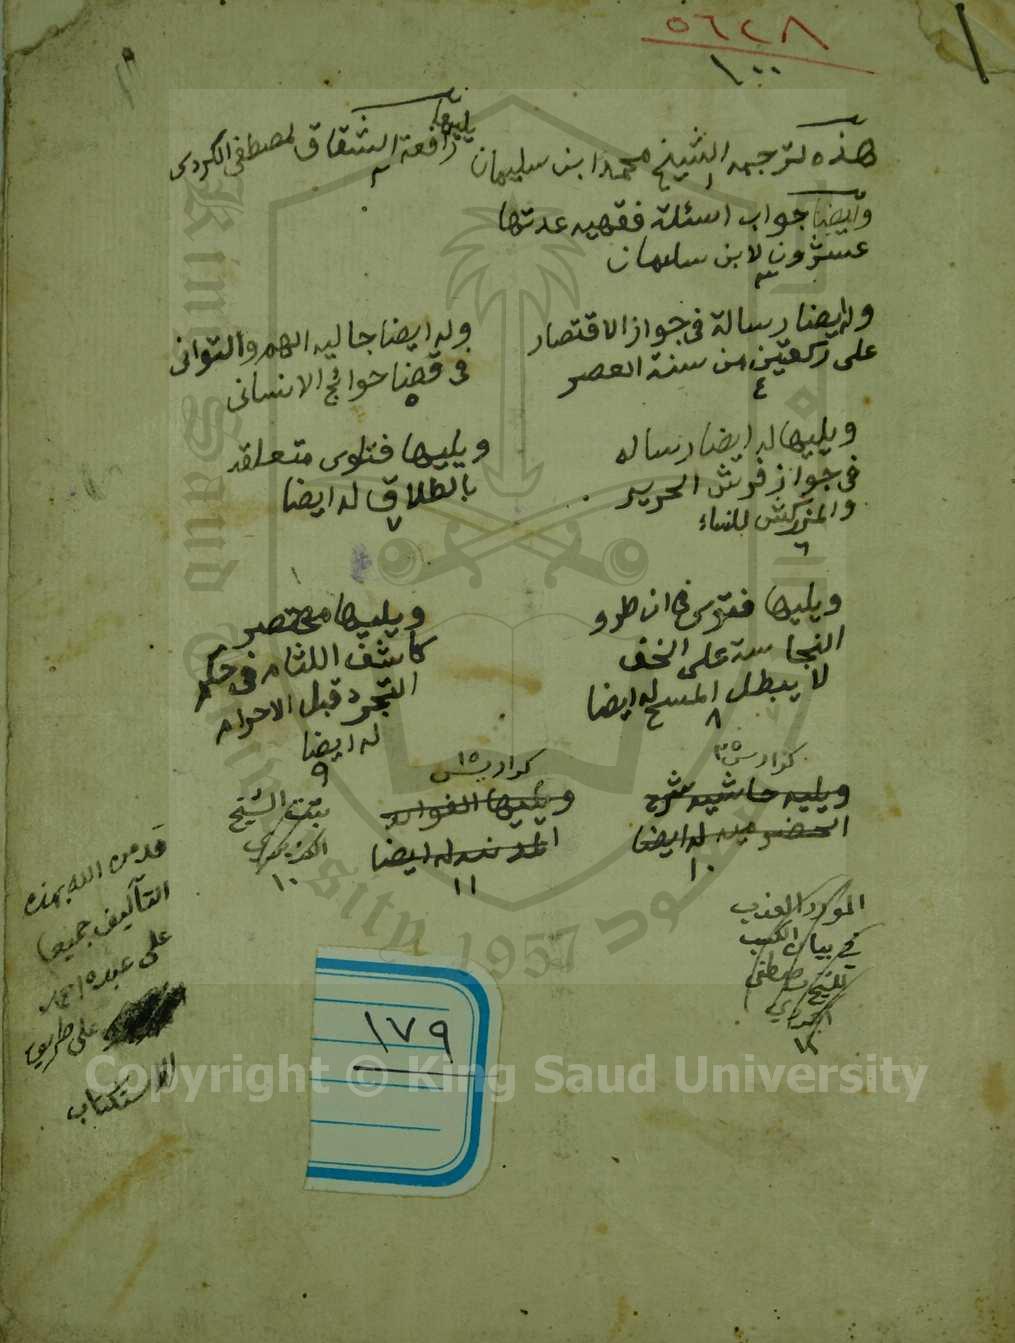 ٥٦٢٨
١٠٠
هذه ترجمه الشيخ محمد ابن سليمان
١
يليها رافعة الشقاق لمصطفى الكردى
٢
وايضا جواب اسئلة فقهيه عدتها
عشرون لابن سليمان
٣
وله ايضا رسالة فى جواز الاقتصار
على ركعتين من سنة العصر
٤
وله ايضا جاليه الهم والتوانى
فى قضا حوائج الانسانى
٥
ويليها له ايضا رساله
فى جواز فرش الحرير
والمزركش للنساء
٦
ويليها فتاوى متعلقه
بالطلاق له ايضا
٧
ويليها فتوى فى ان طرو
النجاسة على الخف
لا يبطل المسح له ايضا
٨
ويليها مختصر
كاشف اللثام فى حكم
التجرد قبل الاحرام
له ايضا
٩
كراريس ٣٥
ويليه حاشيه شرح
الحضرميه له ايضا
١٠
كراريس ١٥
ويليها الفوائد
المدنيه له ايضا
١١
ثبت الشيخ
١٠
المورد العذب
في بيان الكسب
للشيخ مصطفى
البكري
قد من الله بهذه
التآليف جميعها
على عبده احمد
على طريق
الاستكتاب
١٧٩
King Saud University 1957
Copyright © King Saud University